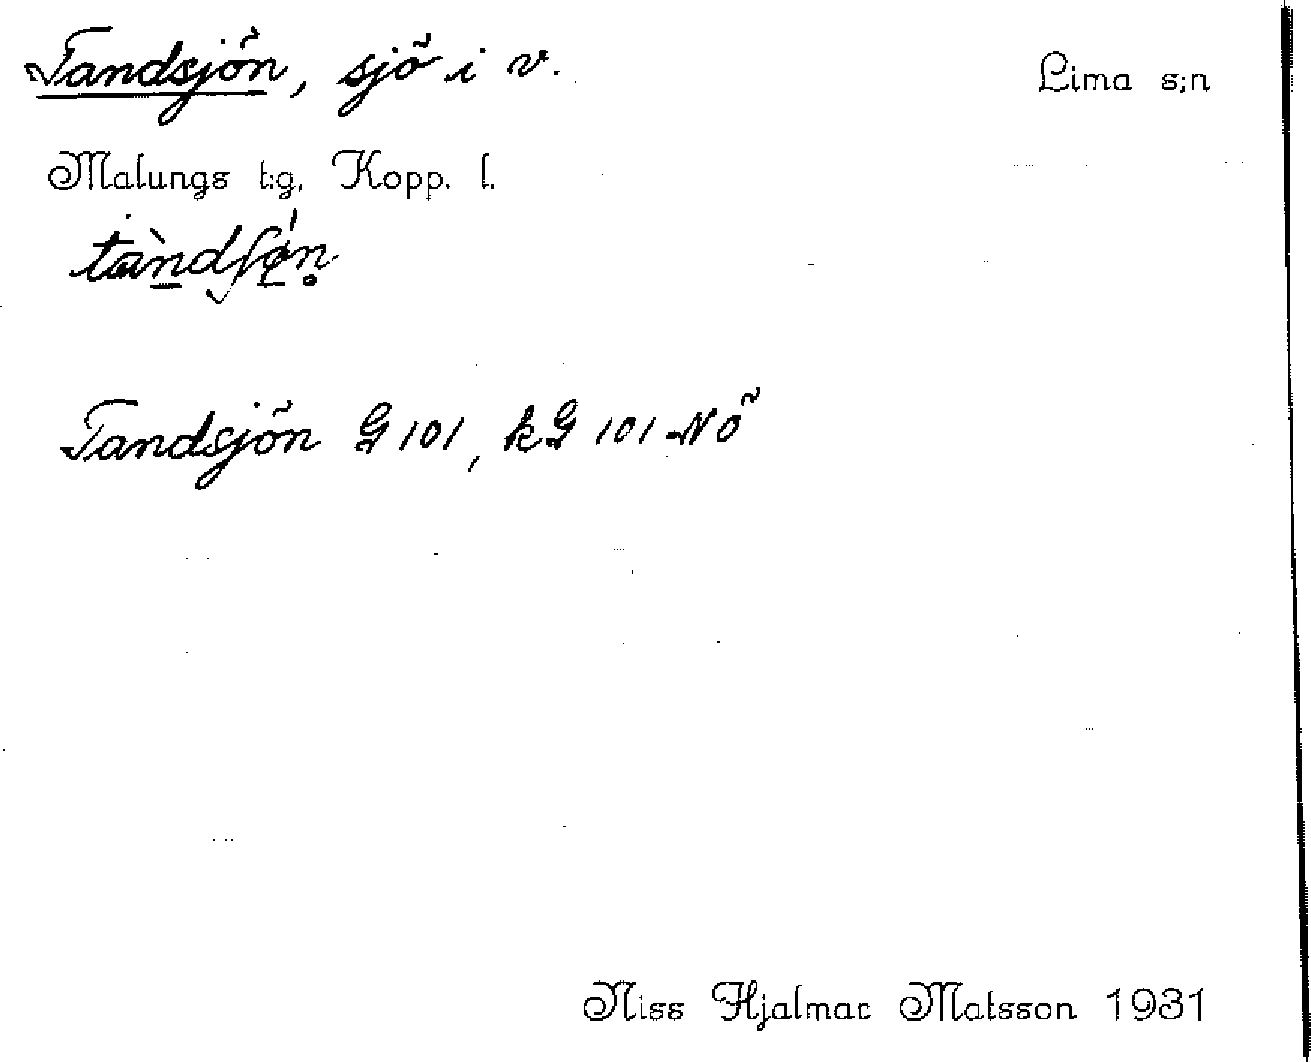 Tandsjön, sjö i v.
Lima s:n
Malungs t:g, Kopp. l.
Tandsjön G 101, kG 101-NÖ
Niss Hjalmar Matsson 1931